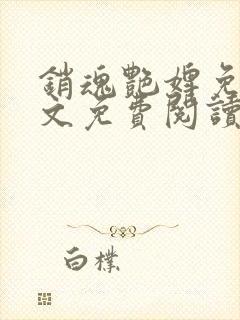 銷魂艷婢免
文免費閱讀
白樸